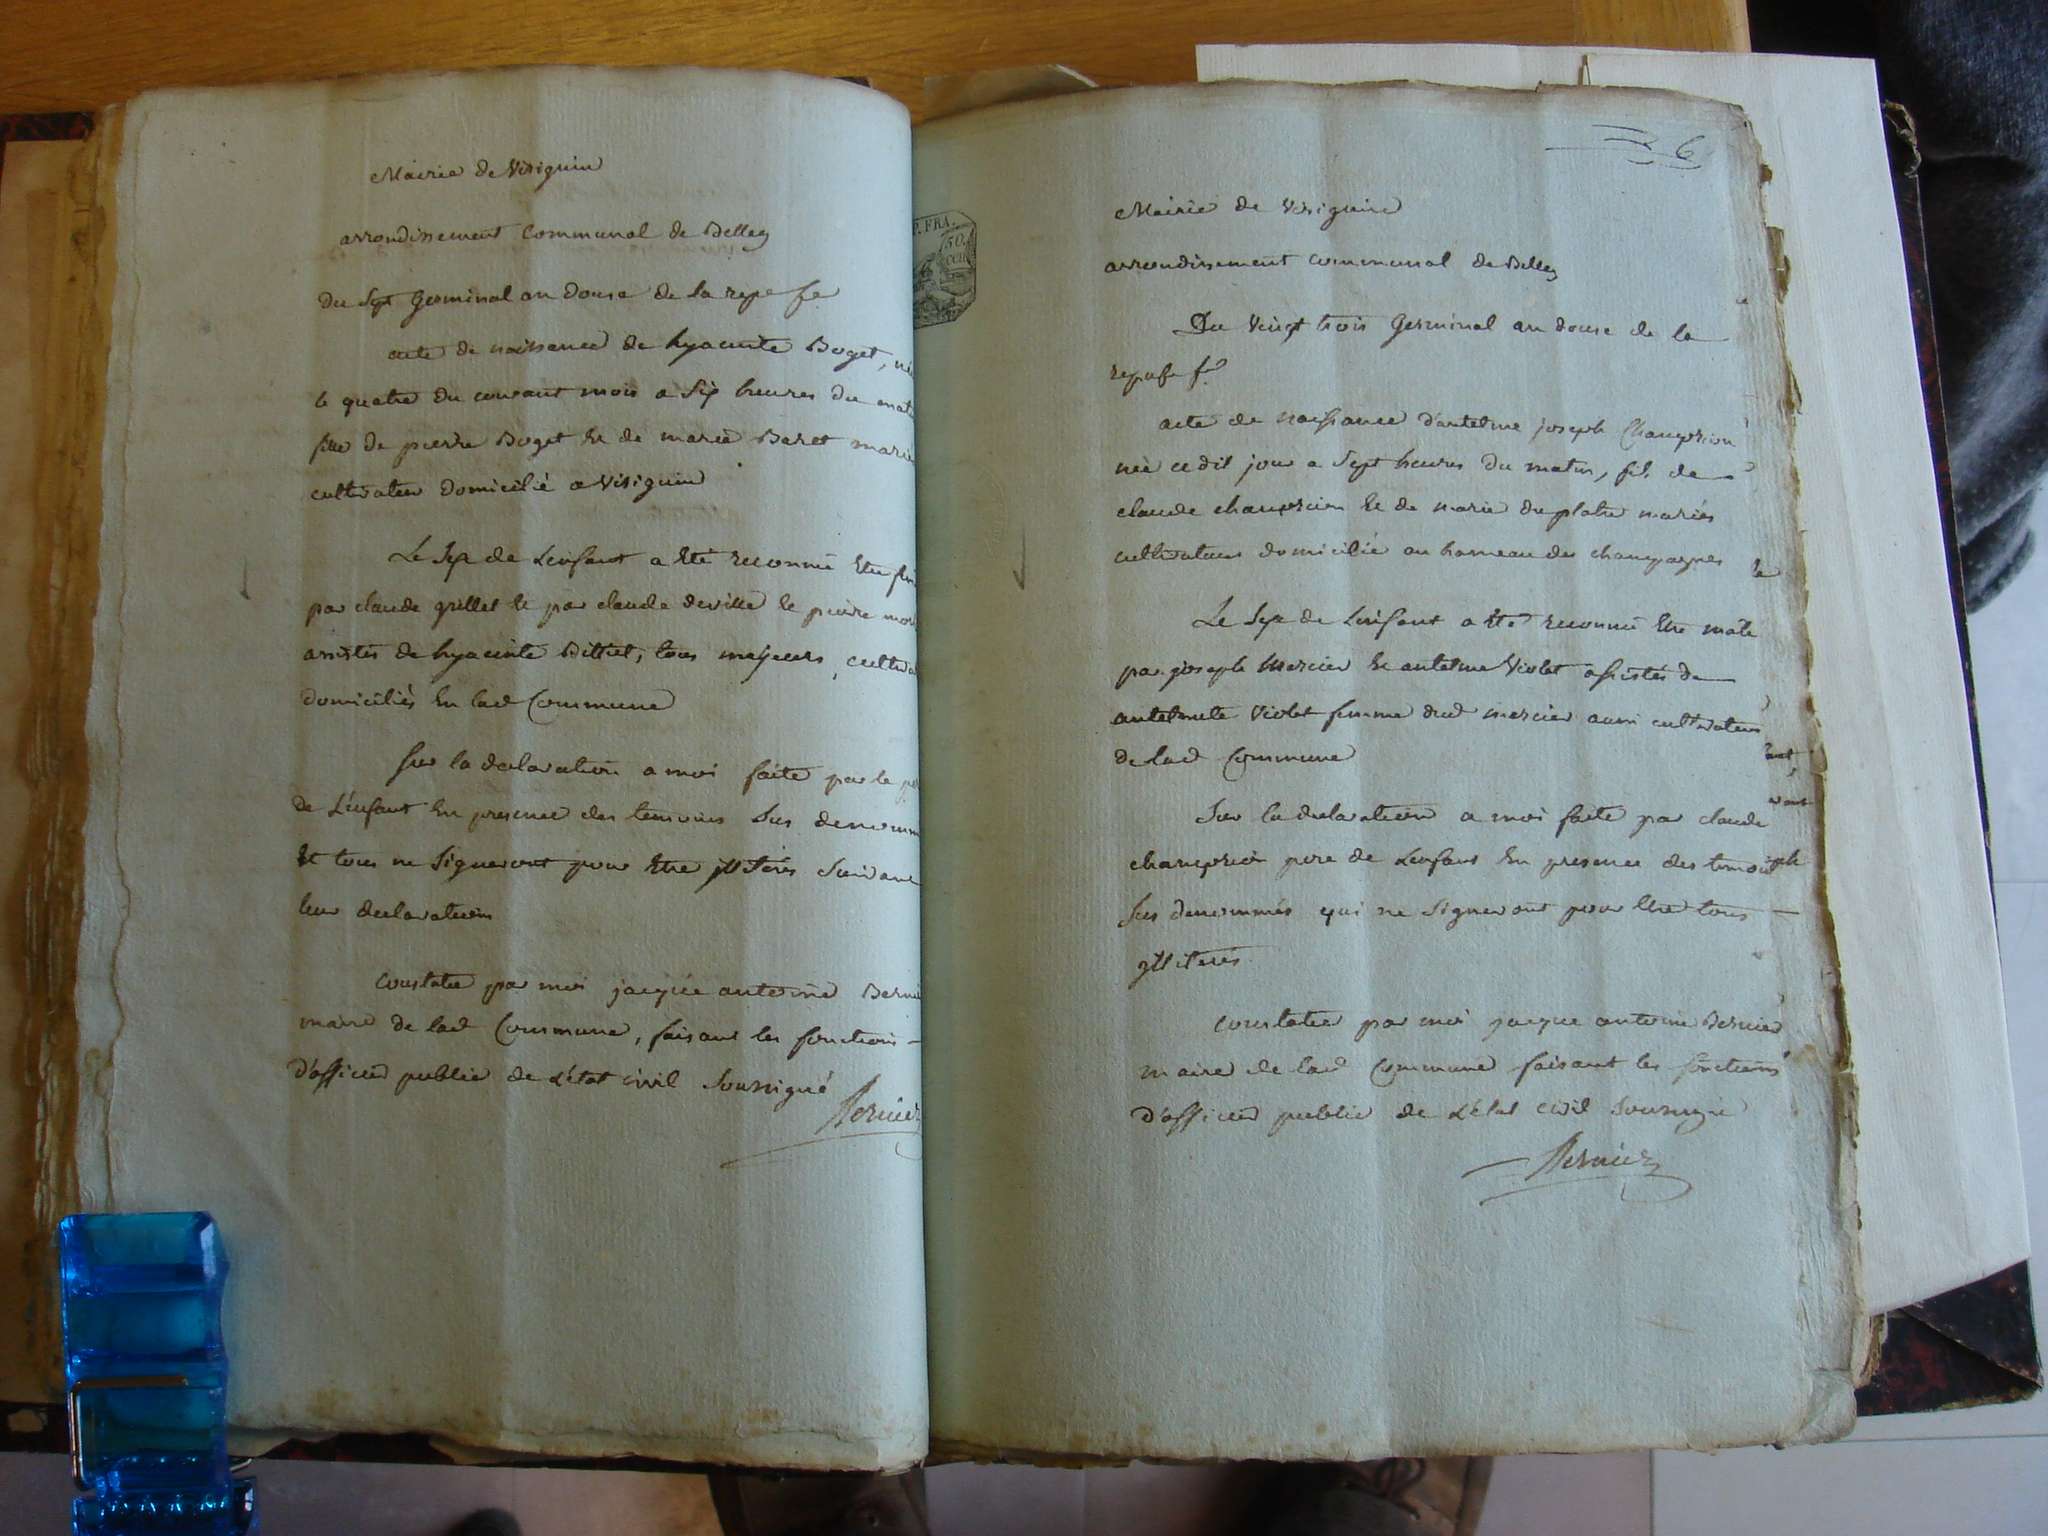 Mairie de Virignin
arrondissement Communal de Belley
Du Sept Germinal an douse de la repe fse
acte de naissance de hyacinte Boget, née
le quatre du courant mois a Six heures du mat
fille de pierre Boget Et de marie Baret marié
cultivateur domicilié a Virignin
Le Sexe de Lenfant a Eté reconnu Etre
par claude grillet et par claude deville le
assistés de hyacinte Billiet, tous majeurs, cultiva
domiciliés En lad Commune
Sur la declaration a moi faite par le
de L'enfant En presence des temoins Sus denomm
Et tous ne Signeront pour Etre illiterés Suivant
leur declaration
Constatée par moi jacque antoine Bernie
maire de lad Commune, faisant les fonctions
d'officier public de L'état Civil Soussigné
Bernier
P. FRA.
50
CEN
6
Mairie de Virignin
arrondissement communal de Belley
Du Vingt trois Germinal an douse de la
repe fe
acte de naissance d'antelme joseph Champrion
née cedit jour a Sept heures du matin, fils de
claude champrion Et de marie duplatre mariés
cultivateurs domicilié au hameau des champagnes
Le Sexe de Lenfant a Eté reconnu Etre mâle
par joseph Mercier Et antelme Violet assistés de
antelmete Violet femme dud mercier aussi cultivateurs
de lad Commune
Sur la declaration a moi faite par claude
champrion pere de Lenfant En presence des temoins
Sus denommés qui ne Signeront pour Etre tous
illiterés
Constatée par moi jacque antoine Bernier
maire de lad Commune faisant les fonctions
d'officier public de L'état Civil Soussigné
Bernier